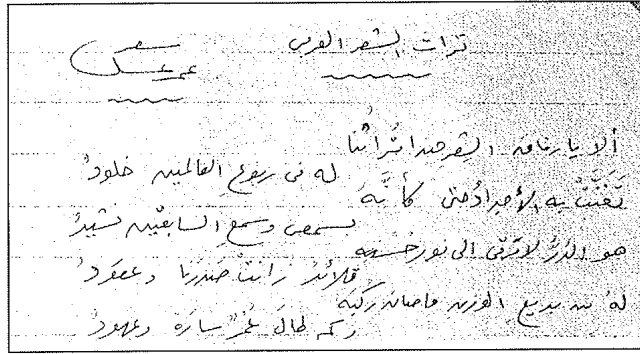 تراث الشعر العربي
شعر
عمر عسل
ألا يا رفاق الشعر هذا تراثنا
له في ربوع العالمين خلودُ
تغنَّتْ به الأجداد حتى كأنَّهُ
بسمعي وسمع السابقين نشيدُ
هو الدُّرُّ لا ترقى الى نور حسنه
قلائدُ زانتْ صدرنا وعقودُ
لهُ من بديع الوزن ما صان ركبه
وكم طال عُمْرٌ سارَهُ وعهودُ